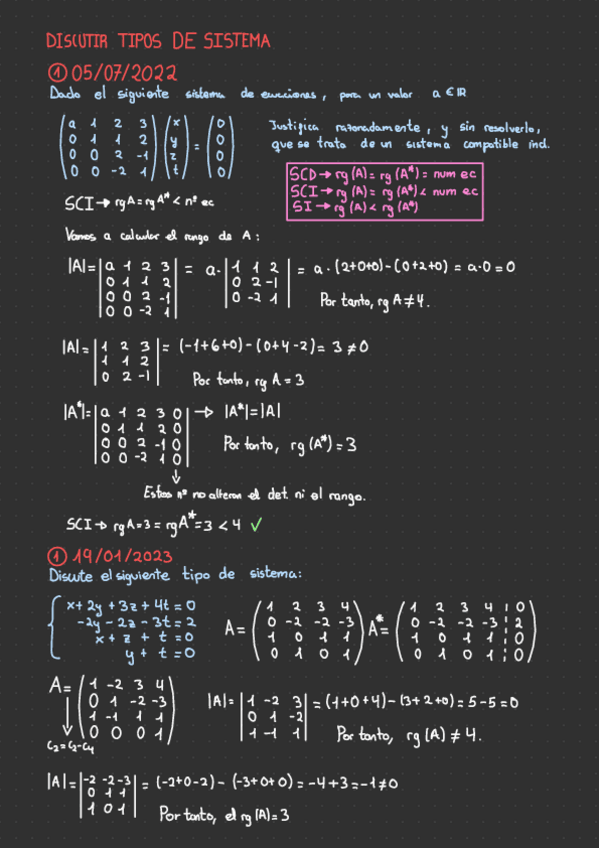 DISCUTIR TIPOS DE SISTEMA
① 05/07/2022
Dado el siguiente sistema de ecuaciones, para un valor a ∈ IR
(a 1 2 3) (x) (0)
(0 1 1 2) (y) = (0)
(0 0 2 -1) (z) (0)
(0 0 -2 1) (t) (0)
Justifica razonadamente, y sin resolverlo,
que se trata de un sistema compatible ind.
SCD → rg(A) = rg(A*) = num ec
SCI → rg(A) = rg(A*) < num ec
SI → rg(A) < rg(A*)
SCI → rgA = rgA* < nº ec
Vamos a calcular el rango de A:
|A| = |a 1 2 3| = a · |1 1 2| = a · (2+0+0) - (0+2+0) = a·0 = 0
|0 1 1 2| |0 2 -1|
|0 0 2 -1| |0 -2 1|
|0 0 -2 1|
Por tanto, rg A ≠ 4.
|A| = |1 2 3| = (-1+6+0) - (0+4-2) = 3 ≠ 0
|1 1 2|
|0 2 -1|
Por tanto, rg A = 3
|A*| = |a 1 2 3 0| → |A*| = |A|
|0 1 1 2 0|
|0 0 2 -1 0|
|0 0 -2 1 0|
Por tanto, rg (A*) = 3
↓
Estos nº no alteran el det. ni el rango.
SCI → rgA = 3 = rgA* = 3 < 4 ✓
① 19/01/2023
Discute el siguiente tipo de sistema:
x + 2y + 3z + 4t = 0
-2y - 2z - 3t = 2
x + z + t = 0
y + t = 0
A = (1 2 3 4) A* = (1 2 3 4 ¦ 0)
(0 -2 -2 -3) (0 -2 -2 -3 ¦ 2)
(1 0 1 1) (1 0 1 1 ¦ 0)
(0 1 0 1) (0 1 0 1 ¦ 0)
A = (1 -2 3 4)
(0 1 -2 -3)
(1 -1 1 1)
(0 0 0 1)
↓
C₂ = C₂ - C₄
|A| = |1 -2 3| = (1+0+4) - (3+2+0) = 5 - 5 = 0
|0 1 -2|
|1 -1 1|
Por tanto, rg (A) ≠ 4.
|A| = |-2 -2 -3| = (-2+0-2) - (-3+0+0) = -4+3 = -1 ≠ 0
|0 1 1|
|1 0 1|
Por tanto, el rg (A) = 3